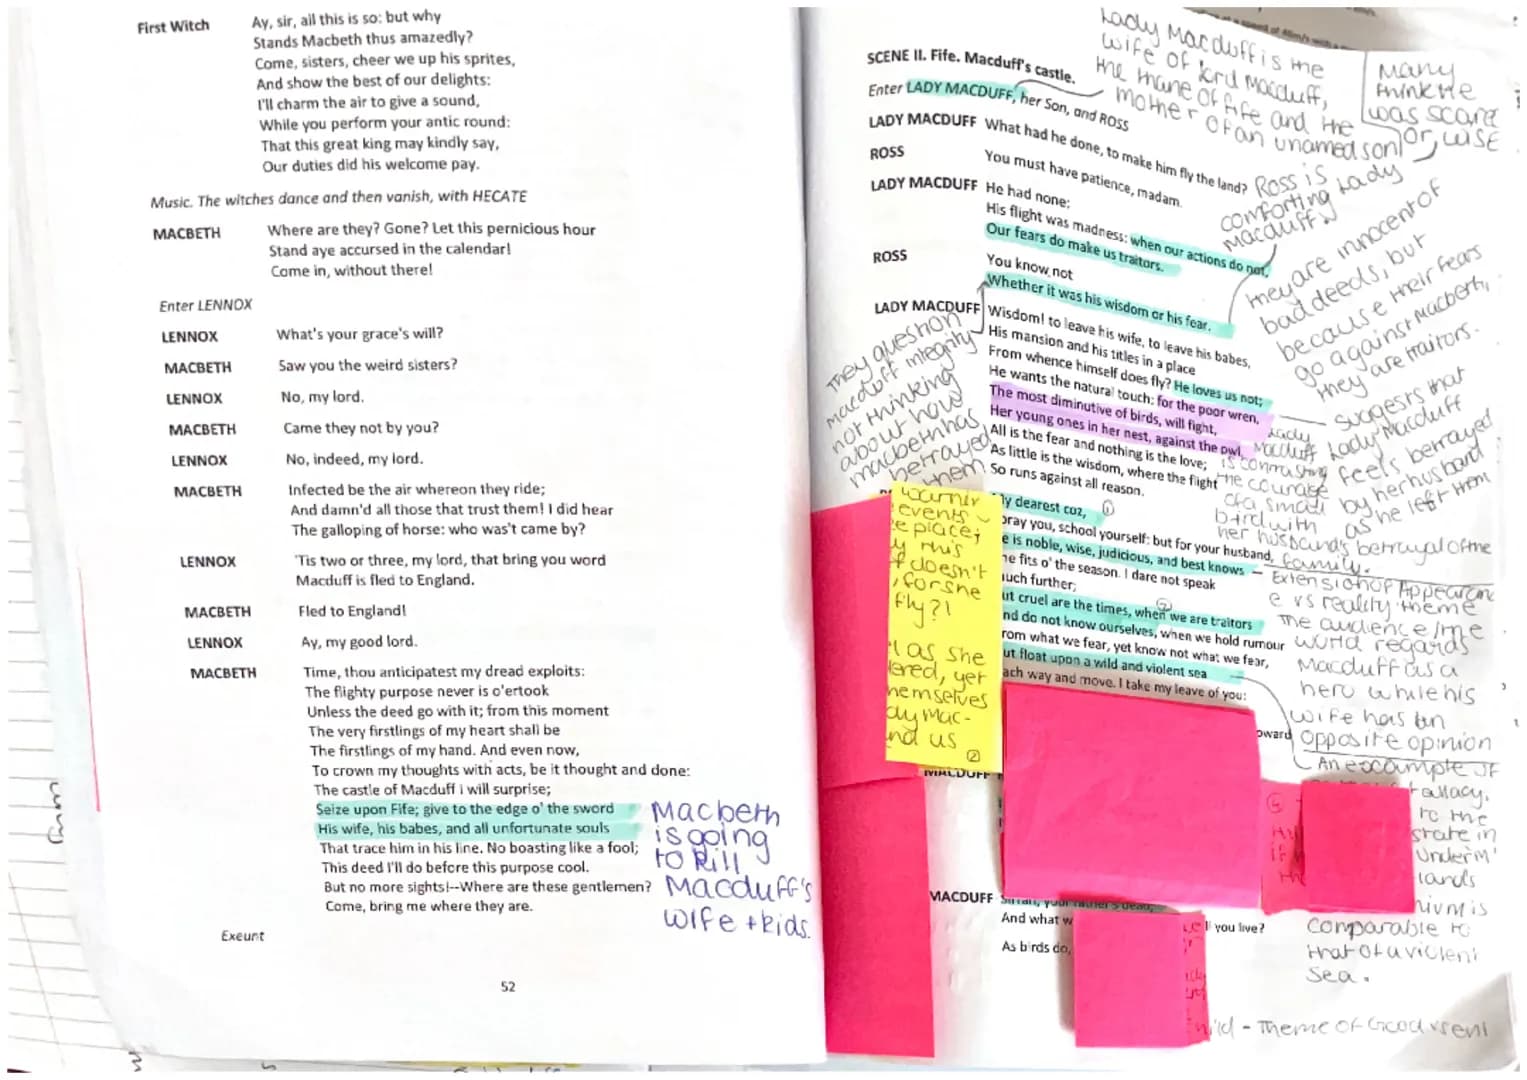 First Witch Ay, sir, all this is so: but why
Stands Macbeth thus amazedly?
Come, sisters, cheer we up his sprites,
And show the best of our delights:
I'll charm the air to give a sound,
While you perform your antic round:
That this great king may kindly say,
Our duties did his welcome pay.
Music. The witches dance and then vanish, with HECATE
MACBETH Where are they? Gone? Let this pernicious hour
Stand aye accursed in the calendar!
Come in, without there!
Enter LENNOX
LENNOX What's your grace's will?
MACBETH Saw you the weird sisters?
LENNOX No, my lord.
MACBETH Came they not by you?
LENNOX No, indeed, my lord.
MACBETH Infected be the air whereon they ride;
And damn'd all those that trust them! I did hear
The galloping of horse: who was't came by?
LENNOX 'Tis two or three, my lord, that bring you word
Macduff is fled to England.
MACBETH Fled to England!
LENNOX Ay, my good lord.
MACBETH Time, thou anticipatest my dread exploits:
The flighty purpose never is o'ertook
Unless the deed go with it; from this moment
The very firstlings of my heart shall be
The firstlings of my hand. And even now,
To crown my thoughts with acts, be it thought and done:
The castle of Macduff I will surprise;
Seize upon Fife; give to the edge o' the sword
His wife, his babes, and all unfortunate souls
That trace him in his line. No boasting like a fool;
This deed I'll do before this purpose cool.
But no more sights!--Where are these gentlemen?
Come, bring me where they are.
Exeunt
52
Macbeth
is going
to kill
Macduff's
wife + kids.
SCENE II. Fife. Macduff's castle.
Enter LADY MACDUFF, her Son, and ROSS
LADY MACDUFF What had he done, to make him fly the land?
ROSS You must have patience, madam.
LADY MACDUFF He had none:
His flight was madness: when our actions do not,
Our fears do make us traitors.
ROSS You know not
Whether it was his wisdom or his fear.
LADY MACDUFF Wisdom! to leave his wife, to leave his babes,
His mansion and his titles in a place
From whence himself does fly? He loves us not;
He wants the natural touch: for the poor wren,
The most diminutive of birds, will fight,
Her young ones in her nest, against the owl.
All is the fear and nothing is the love;
As little is the wisdom, where the flight
So runs against all reason.
My dearest coz,
pray you, school yourself: but for your husband,
e is noble, wise, judicious, and best knows
he fits o' the season. I dare not speak
uch further;
ut cruel are the times, when we are traitors
nd do not know ourselves, when we hold rumour
rom what we fear, yet know not what we fear,
ut float upon a wild and violent sea
ach way and move. I take my leave of you:
MACDUFF
MACDUFF Sirrah, your father's dead;
And what w
l you live?
As birds do,
Lady Macduff is the
wife of lord Macduff,
the thane of fife and the
mother of an unamed son
Many
think he
was scared
or wise
Ross is
comforting Lady
Macduff.
they are innocent of
bad deeds, but
because their fears
go against Macbeth,
they are traitors.
They question
macduff integrity
not thinking
about how
macbeth has
betrayed
them
suggests that
Lady Macduff
feels betrayed
by her husband
as he left them
Lady
Macduff
is contrasting
the courage
of a small
bird with
her husband's betrayal of the
family.
Extension of Appearanc
e vs reality theme
The audience/the
world regards
Macduff as a
hero while his
wife has an
opposite opinion
An example of
fallacy.
to the
state in
lands
comparable to
that of a violent
sea.
events
e place;
y this
f doesn't
, for she
fly?!
l as she
ered, yet
hemselves
dy Mac-
nd us
2
- Theme of Good vs evil